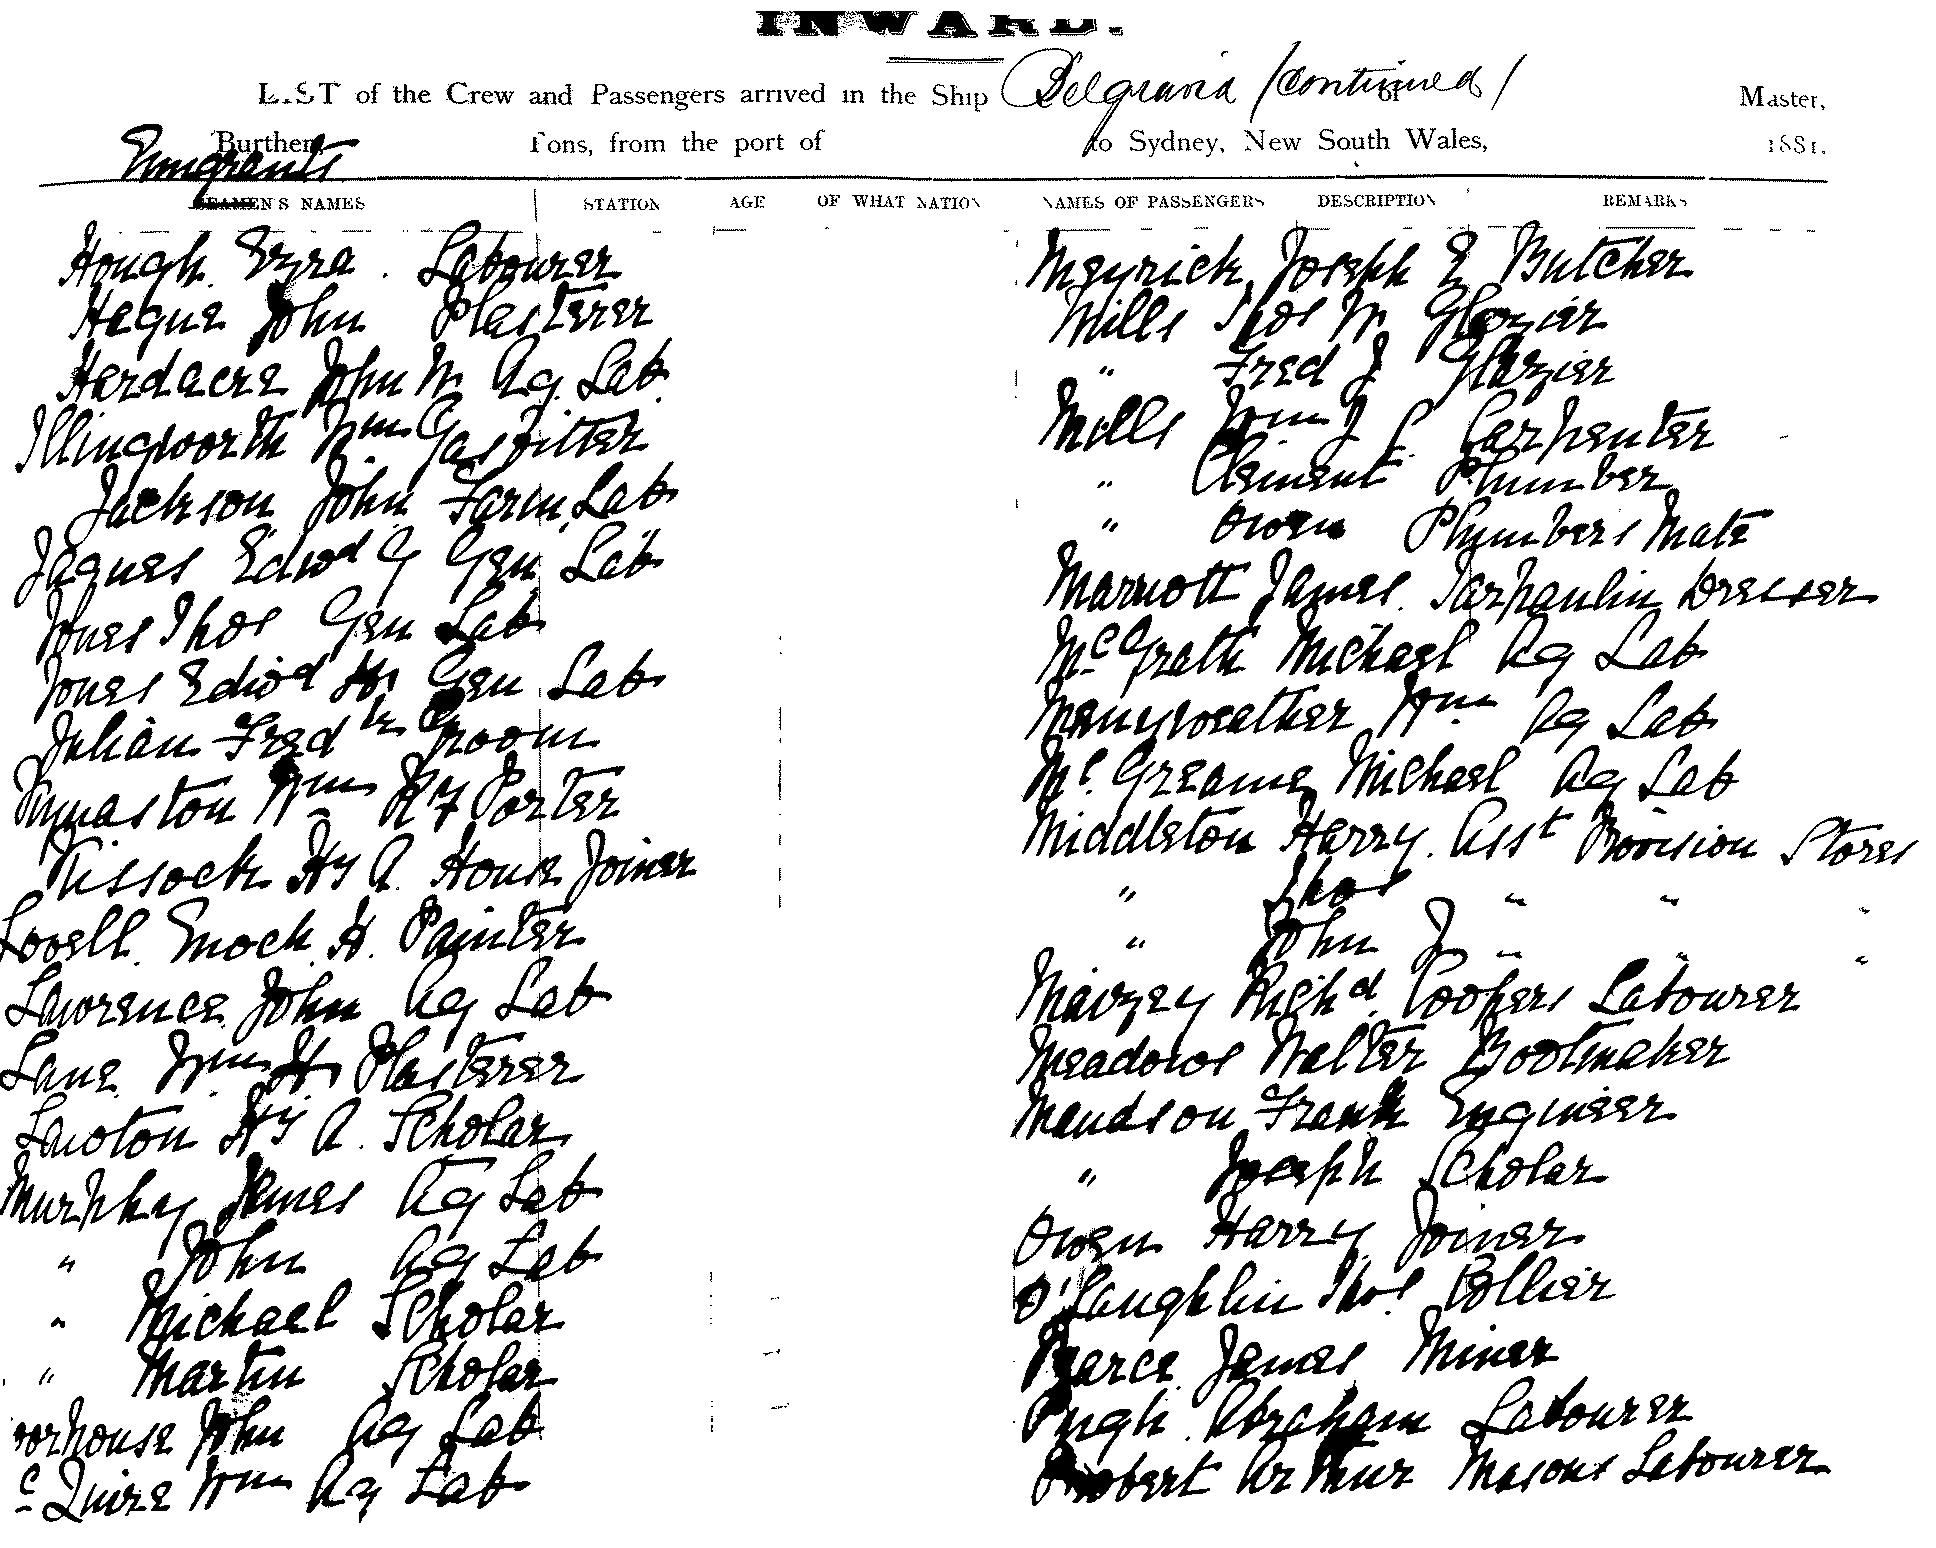 INWARD.
LIST of the Crew and Passengers arrived in the Ship Belgravia (continued) Master,
Burthen Tons, from the port of to Sydney, New South Wales, 1881.
Emigrants
SEAMEN'S NAMES STATION AGE OF WHAT NATION NAMES OF PASSENGERS DESCRIPTION REMARKS
Hough Ezra. Labourer
Hague John Plasterer
Hardacre John W Ag. Lab.
Illingworth Wm Gasfitter
Jackson John Farm Lab
Jaques Edwd G Gen Lab
Jones Thos Gen Lab
Jones Edwd Hy Gen Lab
Julian Fredk Groom
Kynaston Wm Ry Porter
Kissock Hy A. House Joiner
Lovell Enoch H. Painter
Lawrence John Ag Lab
Lane Wm Hy Plasterer
Lawton Hy A. Scholar
Murphy James Ag Lab
" John Ag Lab
" Michael Scholar
" Martin Scholar
oorhouse John Ag Lab
c Quire Wm Ag Lab
Meyrick Joseph E Butcher
Mills Thos W Glazier
" Fred J Glazier
Mills Wm J C Carpenter
" Clement Plumber
" Owen Plumbers Mate
Marriott James Tarpaulin Dresser
McGrath Michael Ag Lab
Manyweather Wm Ag Lab
Mc Greame Michael Ag Lab
Middleton Harry. Asst Provision Stores
" Thos " " "
" John J " " "
Richd. Coopers Labourer
Meadows Walter Bootmaker
Maudson Frank Engineer
" Joseph Scholar
Owen Harry Joiner
O'Laughlin Thos Collier
Pearce James Miner
Pugh Abraham Labourer
Probert Arthur Masons Labourer